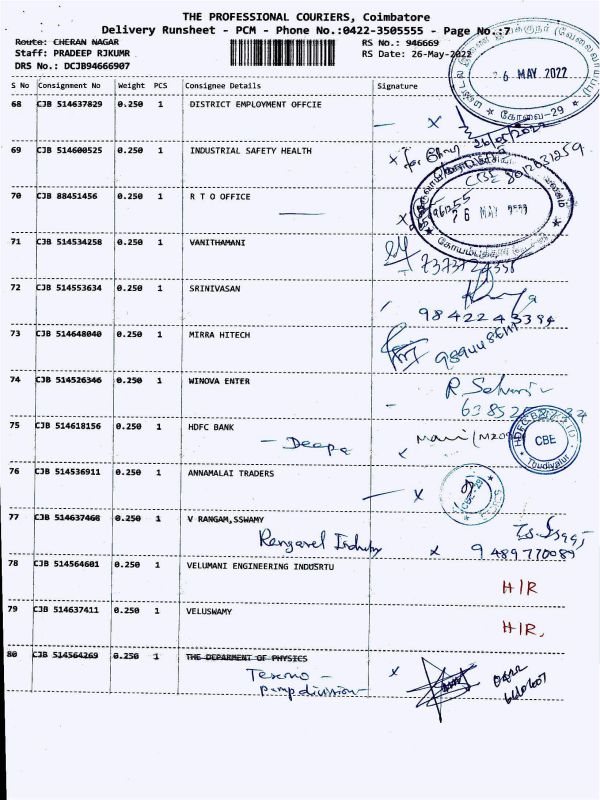 THE PROFESSIONAL COURIERS, Coimbatore
Delivery Runsheet - PCM - Phone No.:0422-3505555 - Page No.:7
Route: CHERAN NAGAR
Staff: PRADEEP RJKUMR
DRS No.: DCJB94666907
RS No.: 946669
RS Date: 26-May-2022
26 MAY 2022
கோவை-29
S No Consignment No Weight PCS Consignee Details Signature
68 CJB 514637829 0.250 1 DISTRICT EMPLOYMENT OFFCIE
x
26/05/2022
69 CJB 514600525 0.250 1 INDUSTRIAL SAFETY HEALTH
x for
CBE 8012631259
70 CJB 88451456 0.250 1 R T O OFFICE
x
26 MAY
71 CJB 514534258 0.250 1 VANITHAMANI
72 CJB 514553634 0.250 1 SRINIVASAN
73 CJB 514648040 0.250 1 MIRRA HITECH
74 CJB 514526346 0.250 1 WINOVA ENTER
75 CJB 514618156 0.250 1 HDFC BANK
- Deepa
Mani
HDFC BANK LTD
CBE
Thudiyalur
76 CJB 514536911 0.250 1 ANNAMALAI TRADERS
x
CBE-29
77 CJB 514637468 0.250 1 V RANGAM,SSWAMY
Rengavel Industry
x 9489770089
78 CJB 514564601 0.250 1 VELUMANI ENGINEERING INDUSRTU
H/R
79 CJB 514637411 0.250 1 VELUSWAMY
H/R.
80 CJB 514564269 0.250 1 THE DEPARMENT OF PHYSICS
x
Pump division